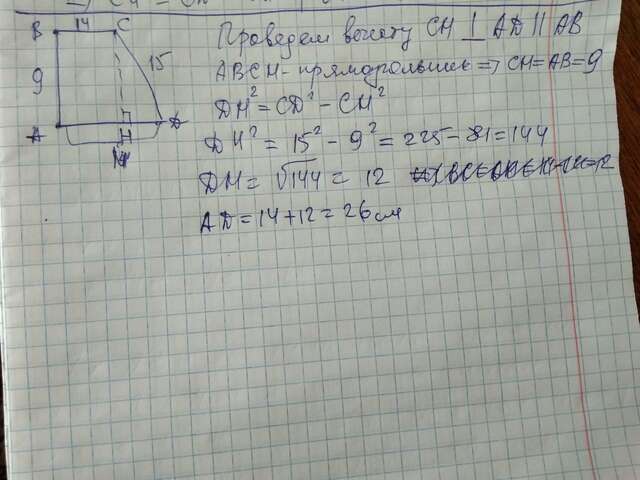 B 14 C
Проведем высоту CH ⊥ AD || AB
15
9
ABCH - прямоугольник => CH = AB = 9
DH² = CD² - CH²
A H D
DH² = 15² - 9² = 225 - 81 = 144
DH = √144 = 12
AD = 14 + 12 = 26 см